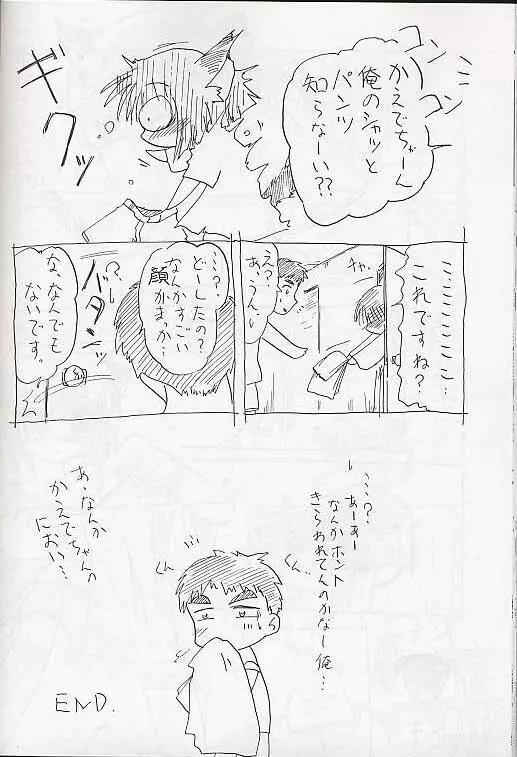 コンコン
かえでちゃーん
俺のシャツと
パンツ
知らなーい??
ギクッ
こここここここ…
これですね?…
チャ。
え?
あ、うん…
…?
どーしたの?
なんかすごい
顔がまっか…
バタンッ
な、なんでも
ないです。
…?
あーあー
なんかホント
きらわれてんのかなー俺…
くん…
くん
あ、なんか
かえでちゃんの
におい…
END.